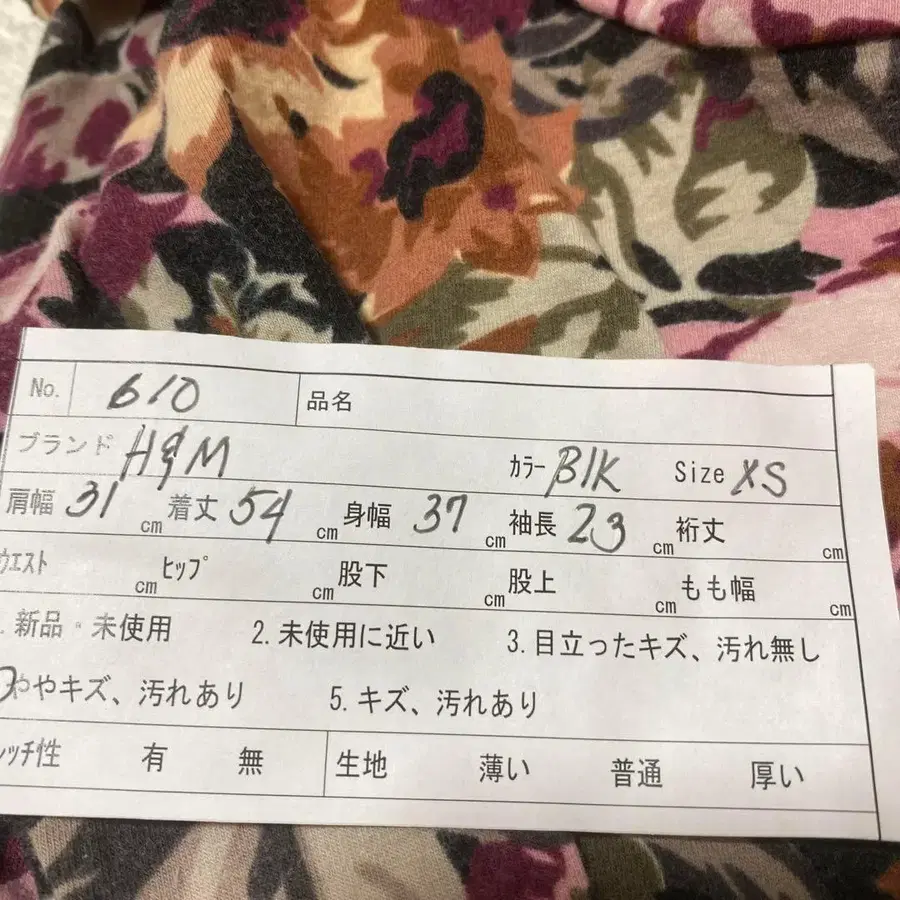 No. 610 品名
ブランド H&M カラー Blk Size XS
肩幅 31 cm 着丈 54 cm 身幅 37 cm 袖長 23 cm 裄丈 cm
ウエスト cm ヒップ cm 股下 cm 股上 cm もも幅 cm
. 新品・未使用 2. 未使用に近い 3. 目立ったキズ、汚れ無し
ややキズ、汚れあり 5. キズ、汚れあり
ッチ性 有 無 生地 薄い 普通 厚い